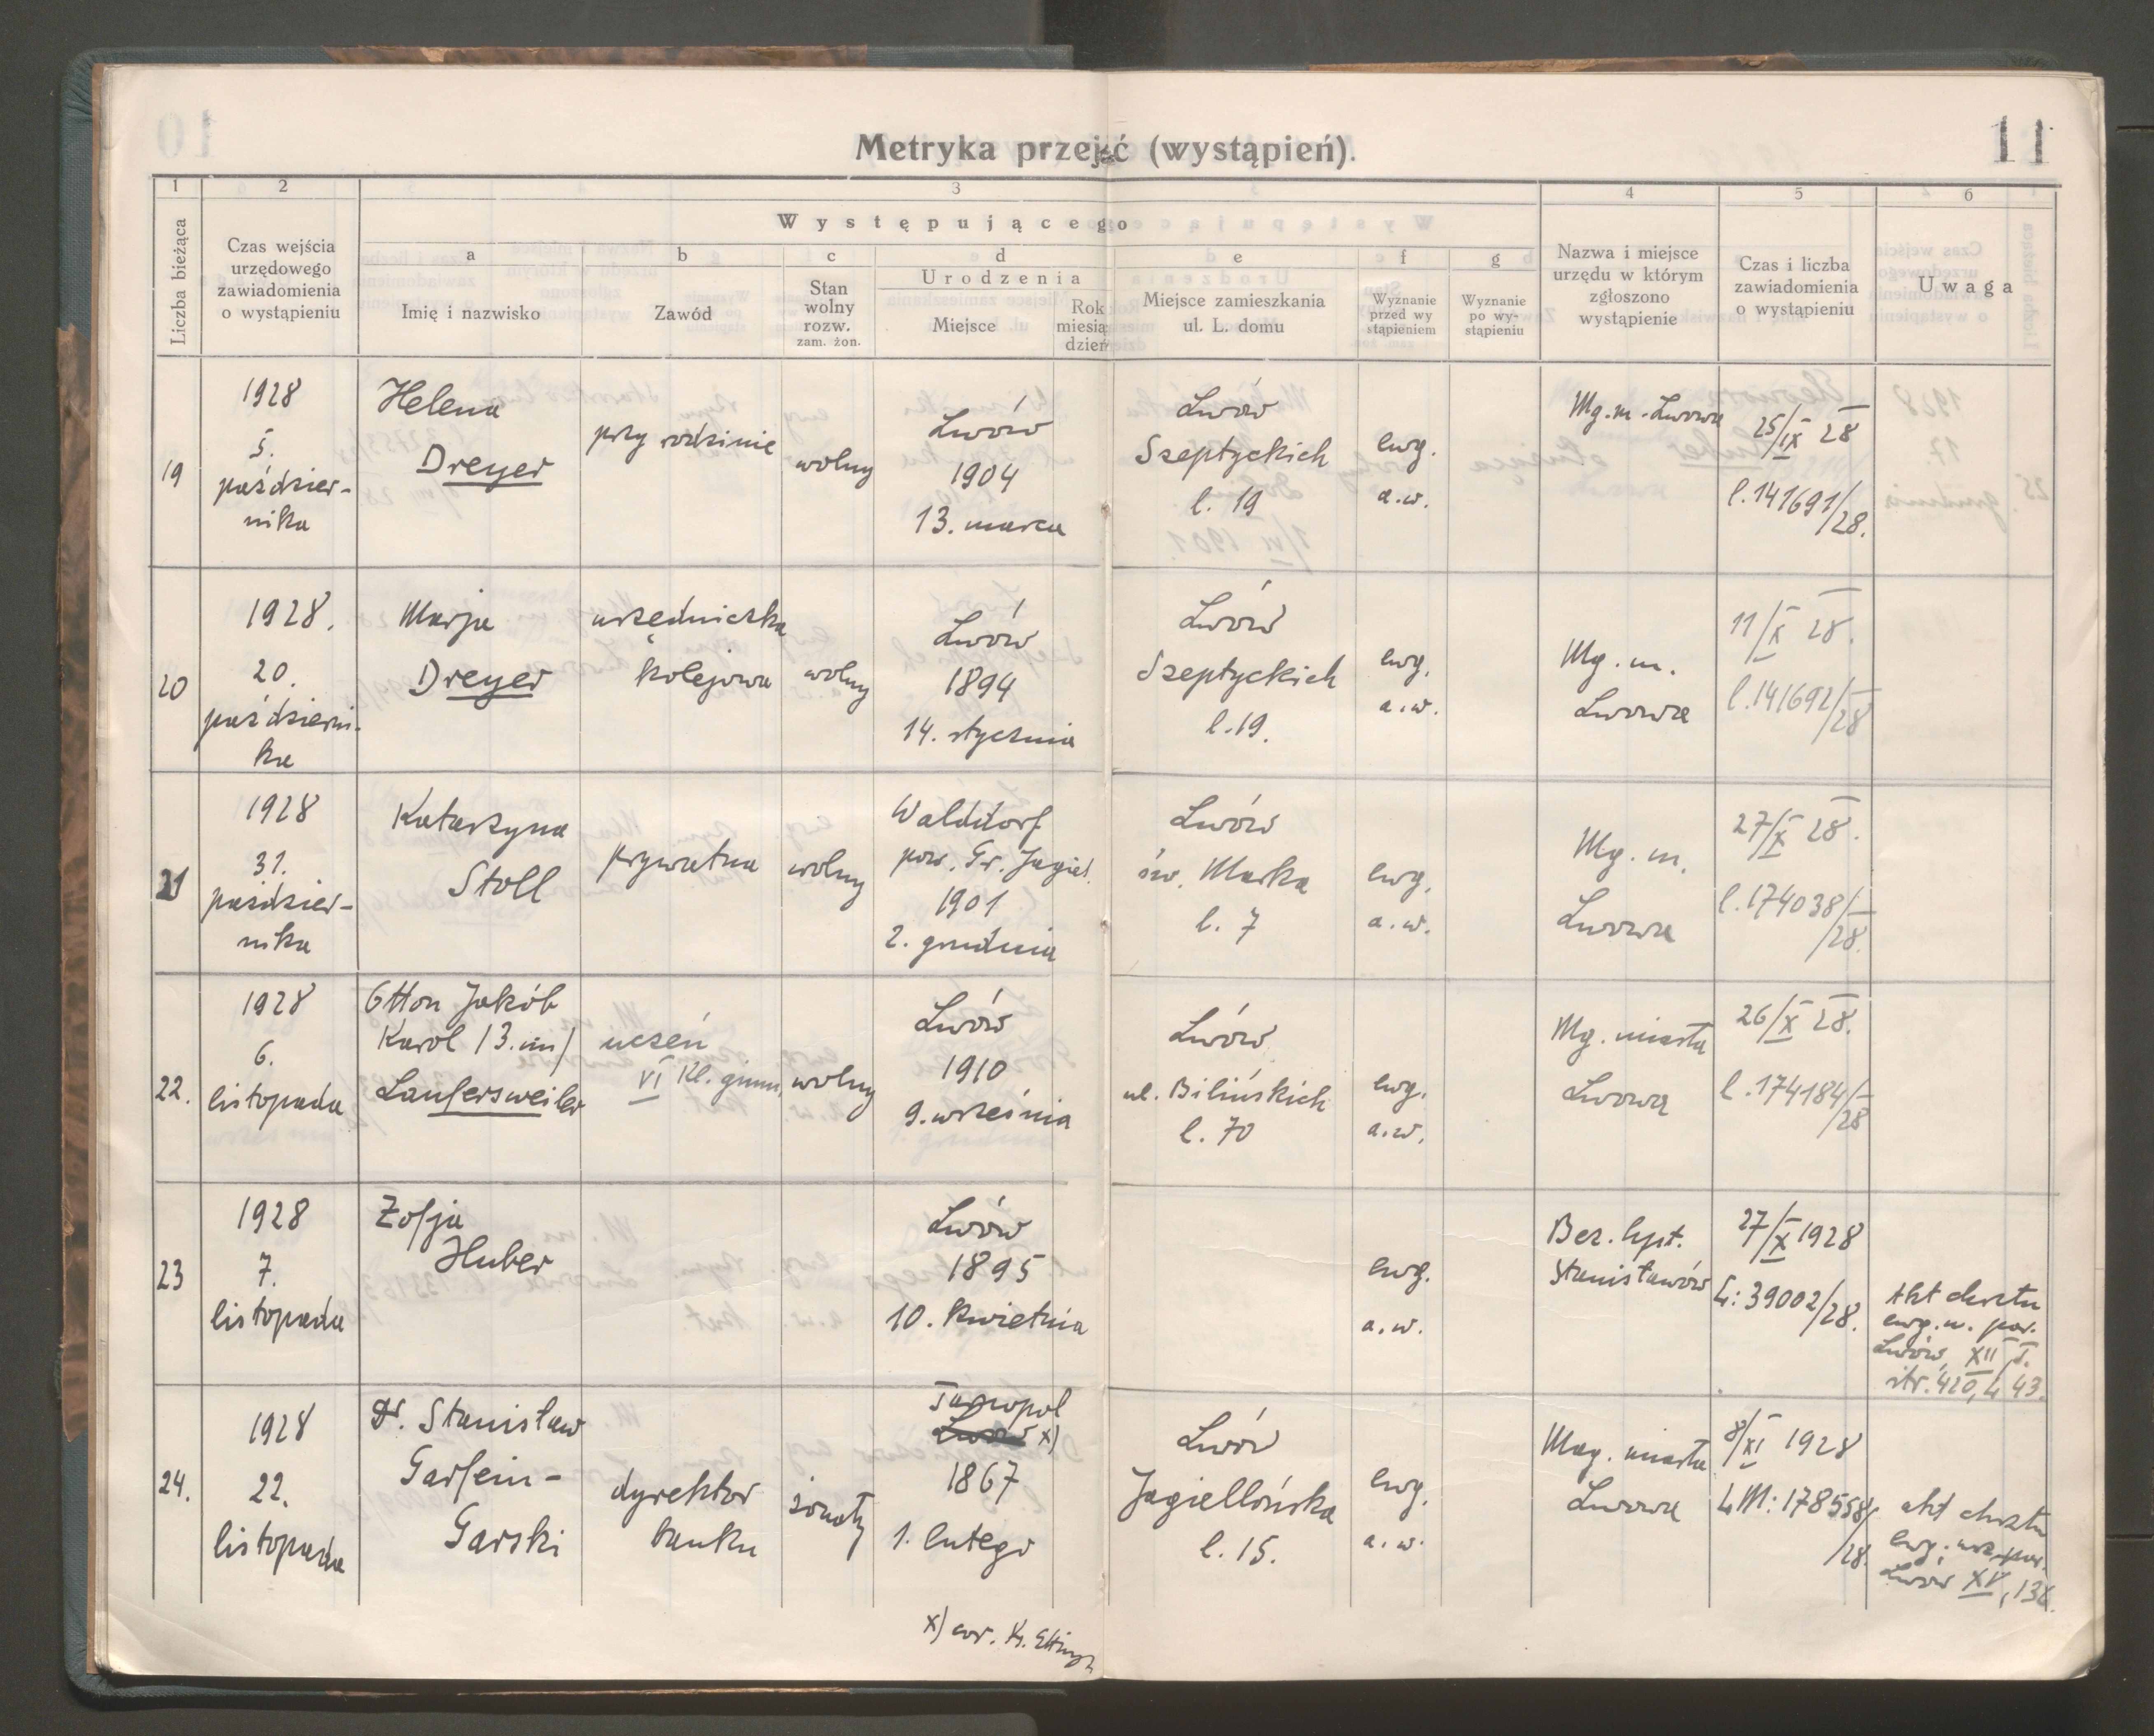 Metryka przejść (wystąpień).
11
1
2
3
4
5
6
Liczba bieżąca
Czas wejścia
urzędowego
zawiadomienia
o wystąpieniu
Występującego
a
Imię i nazwisko
b
Zawód
c
Stan
wolny
rozw.
zam. żon.
d
Urodzenia
Miejsce
Rok
miesiąc
dzień
e
Miejsce zamieszkania
ul. L. domu
f
Wyznanie
przed wy
stąpieniem
g
Wyznanie
po wy-
stąpieniu
Nazwa i miejsce
urzędu w którym
zgłoszono
wystąpienie
Czas i liczba
zawiadomienia
o wystąpieniu
Uwaga
19
1928
5.
paździer-
nika
Helena
Dreyer
przy rodzinie
wolny
Lwów
1904
13. marca
Lwów
Szeptyckich
l. 19
ewg.
a.w.
Mg. m. Lwowa
25/IX 28
l. 141691/28.
20
1928.
20.
październi-
ka
Marja
Dreyer
urzędniczka
kolejowa
wolny
Lwów
1894
14. stycznia
Lwów
Szeptyckich
l. 19.
ewg.
a.w.
Mg. m.
Lwowa
11/X 28.
l. 141692/28
21
1928
31.
paździer-
nika
Katarzyna
Stoll
prywatna
wolny
Walddorf
pow. Gr. Jagiel.
1901
2. grudnia
Lwów
św. Marka
l. 7
ewg.
a.w.
Mg. m.
Lwowa
27/X 28.
l. 174038/28.
22.
1928
6.
listopada
Otton Jakób
Karol /3. im/
Laufersweiler
uczeń
VI kl. gimn.
wolny
Lwów
1910
9. września
Lwów
ul. Bilińskich
l. 70
ewg.
a.w.
Mg. miasta
Lwowa
26/X 28.
l. 174184/28
23
1928
7.
listopada
Zofja
Huber
Lwów
1895
10. kwietnia
ewg.
a.w.
Stanisławów
27/X 1928
L: 39002/28.
Akt chrztu
ewg. w. par.
Lwów, XII T.
str. 420, L 43.
24.
1928
22.
listopada
Dr. Stanisław
Garfein-
Garski
dyrektor
banku
żonaty
Tarnopol
Lwów x)
1867
1. lutego
Lwów
Jagiellońska
l. 15.
ewg.
a.w.
Mag. miasta
Lwowa
8/XI 1928
LM: 178558/28.
akt chrztu
Lwów XV,
x)